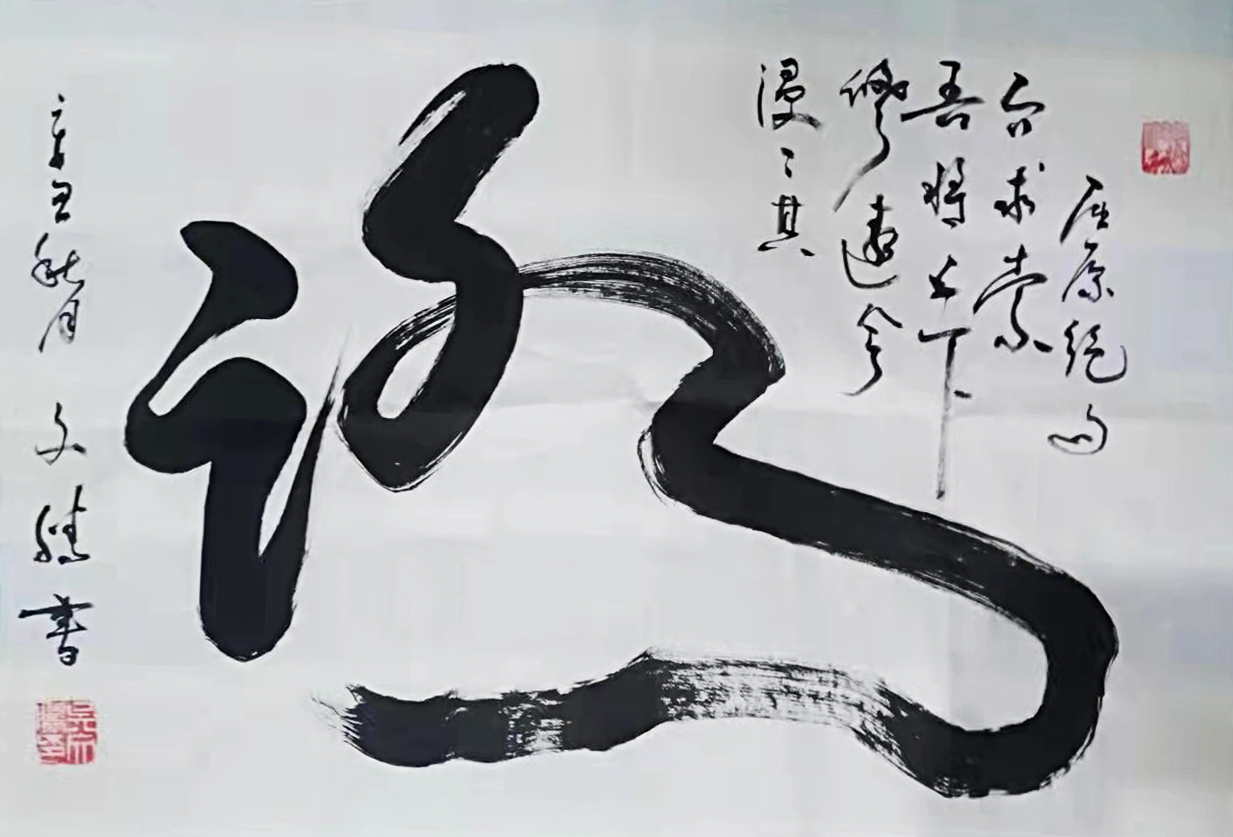 路
漫〻其
修遠兮
吾将上下
而求索
屈原绝句
辛丑秋月 文 書